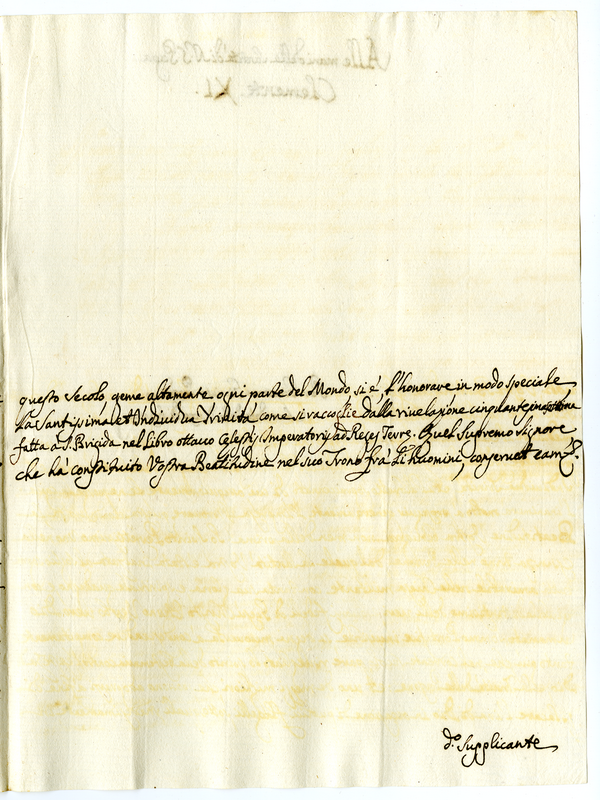 questo secolo, geme altamente ogni parte del Mondo, si é l'honorare in modo speciale
La Santissima, et Individua Trinità, come si raccoglie dalla rivelazione cinquantesima
fatta a S. Brigida nel Libro ottavo Celestis Imperatoris ad Reges Terrę. Quel Supremo Signore
che há constituito Vostra Beatitudine nel suo Trono frá Li huomini, conservi et
d.º Supplicante